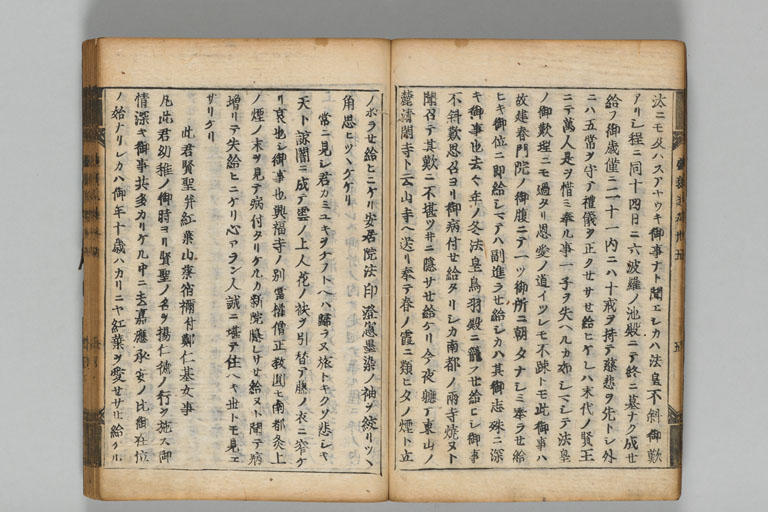 汰ニモ及ハスアヤウキ御事ナト聞エシカハ法皇不斜御歎
アリシ程ニ同十四日ニ六波羅ノ池殿ニテ終ニ墓ナク成セ
給フ御歳僅ニ二十一内ニハ十戒ヲ持テ慈悲ヲ先トシ外
ニハ五常ヲ守テ禮儀ヲ正クセサセ給ヒケレハ末代ノ賢王
ニテ萬人是ヲ惜ミ奉ル事一子ヲ失ヘルカ如シマシテ法皇
ノ御歎理ニモ過タリ恩愛ノ道イツレモ不疎トモ此御事ハ
故建春門院ノ御腹ニテ一ツ御所ニ朝タナシミ奉ラセ給
ヒキ御位ニ即給シマテハ副進ラセ給シカハ其御志殊ニ深
キ御事也去々年ノ冬法皇鳥羽殿ニ籠ラセ給ヒシ御事
不斜歎思召ヨリ御病付セ給タリシカ南都ノ両寺焼ヌト
聞召テ其歎ニ不堪ツ井ニ隠サセ給ケリ今夜軈テ東山ノ
麓清閑寺ト云山寺ヘ送リ奉テ春ノ霞ニ類ヒタノ煙ト立
ノホラセ給ヒニケリ安居院法印澄憲墨染ノ袖ヲ絞リツヽ
角思ヒツヽケケリ
常ニ見シ君カミユキヲケフトヘハ歸ラヌ旅トキクソ悲シキ
天下諒闇ニ成テ雲ノ上人花ノ袂ヲ引替テ藤ノ衣ニ窄ケ
リ哀也シ御事也興福寺ノ別當権僧正教圓モ南都炎上
ノ煙ノ末ヲ見テ病付タリケルカ新院隠レサセ給ヌト聞テ病
増リテ失給ヒニケリ心アラン人誠ニ堪テ住ヘキ世トモ見エ
サリケリ
此君賢聖并紅葉山葵宿禰付鄭仁基女事
凡此君幼稚ノ御時ヨリ賢聖ノ名ヲ揚仁徳ノ行ヲ施ス御
情深キ御事共多カリケル中ニ去嘉應承安ノ比御在位
ノ始ナリシカハ御年十歳ハカリニヤ紅葉ヲ愛セサセ給ケル